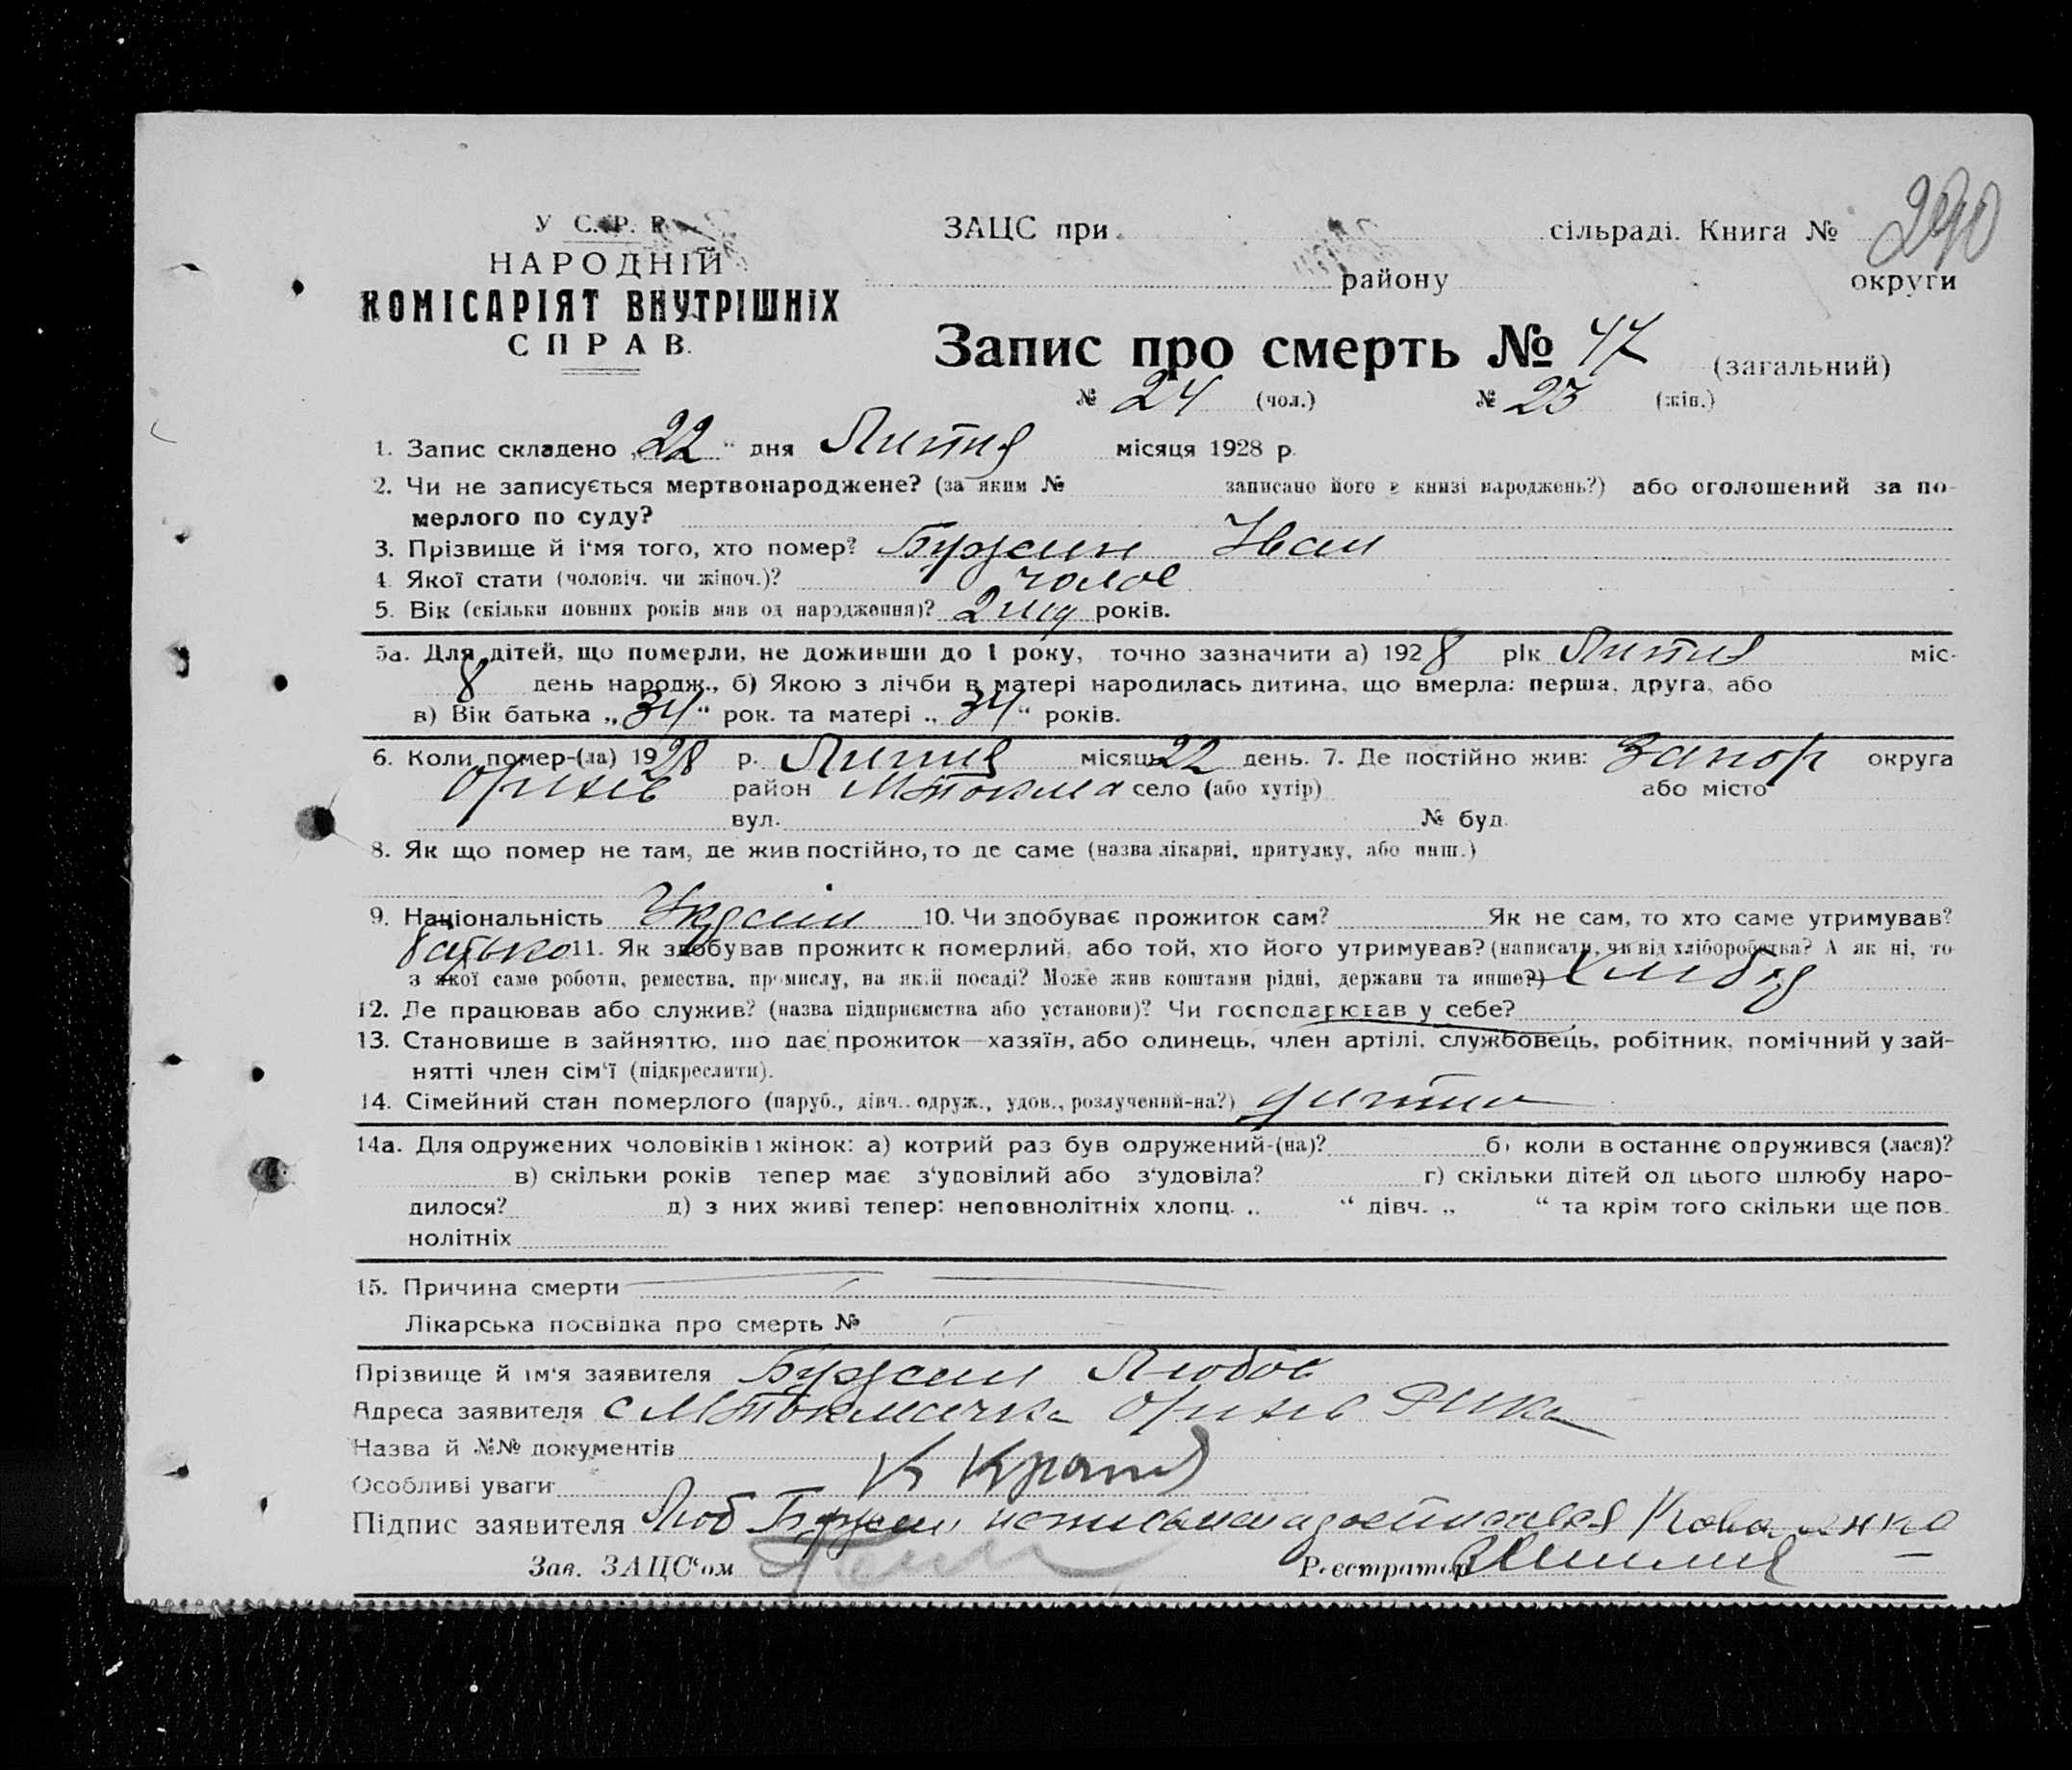 У С. Р. Р.
НАРОДНІЙ
КОМІСАРІЯТ ВНУТРІШНІХ
СПРАВ.
ЗАЦС при сільраді. Книга № 290
району округи
Запис про смерть № 47 (загальний)
№ 24 (чол.) № 23 (жін.)
1. Запис складено „22“ дня Липня місяця 1928 р.
2. Чи не записується мертвонароджене? (за яким № записано його в книзі народжень?) або оголошений за по-
мерлого по суду?
3. Прізвище й і'мя того, хто помер? Бужин Іван
4. Якої стати (чоловіч. чи жіноч.)? чолов
5. Вік (скільки повних років мав од народження)? років.
5а. Для дітей, що померли, не доживши до 1 року, точно зазначити а) 1928 рік Липня міс.
8 день народж., б) Якою з лічби в матері народилась дитина, що вмерла: перша, друга, або
в) Вік батька „34“ рок. та матері „34“ років.
6. Коли помер-(ла) 1928 р. Липня місяць 22 день. 7. Де постійно жив: Запор округа
Оріхів район М Токмач село (або хутір) або місто
вул. № буд.
8. Як що помер не там, де жив постійно, то де саме (назва лікарні, притулку, або инш.)
9. Національність 10. Чи здобуває прожиток сам? Як не сам, то хто саме утримував?
батько 11. Як здобував прожиток померлий, або той, хто його утримував? (написати, чи від хліборобства? А як ні, то
з якої саме роботи, ремества, промислу, на якій посаді? Може жив коштами рідні, держави та инше?)
12. Де працював або служив? (назва підприємства або установи)? Чи господарював у себе?
13. Становише в зайняттю, що дає прожиток—хазяїн, або одинець, член артілі, службовець, робітник, помічний у зай-
нятті член сім'ї (підкреслити).
14. Сімейний стан померлого (паруб., дівч., одруж., удов., розлучений-на?)
14а. Для одружених чоловіків і жінок: а) котрий раз був одружений-(на)? б) коли в останнє одружився (лася)?
в) скільки років тепер має з'удовілий або з'удовіла? г) скільки дітей од цього шлюбу наро-
дилося? д) з них живі тепер: неповнолітніх хлопц. „ “ дівч. „ “ та крім того скільки ще пов-
нолітніх
15. Причина смерти
Лікарська посвідка про смерть №
Прізвище й ім'я заявителя Бужин Любов
Адреса заявителя с М Токмачка Оріхів Рика
Назва й №№ документів
Особливі уваги
Підпис заявителя Люб Бужин Коваленко
Зав. ЗАЦС'ом Реєстратор